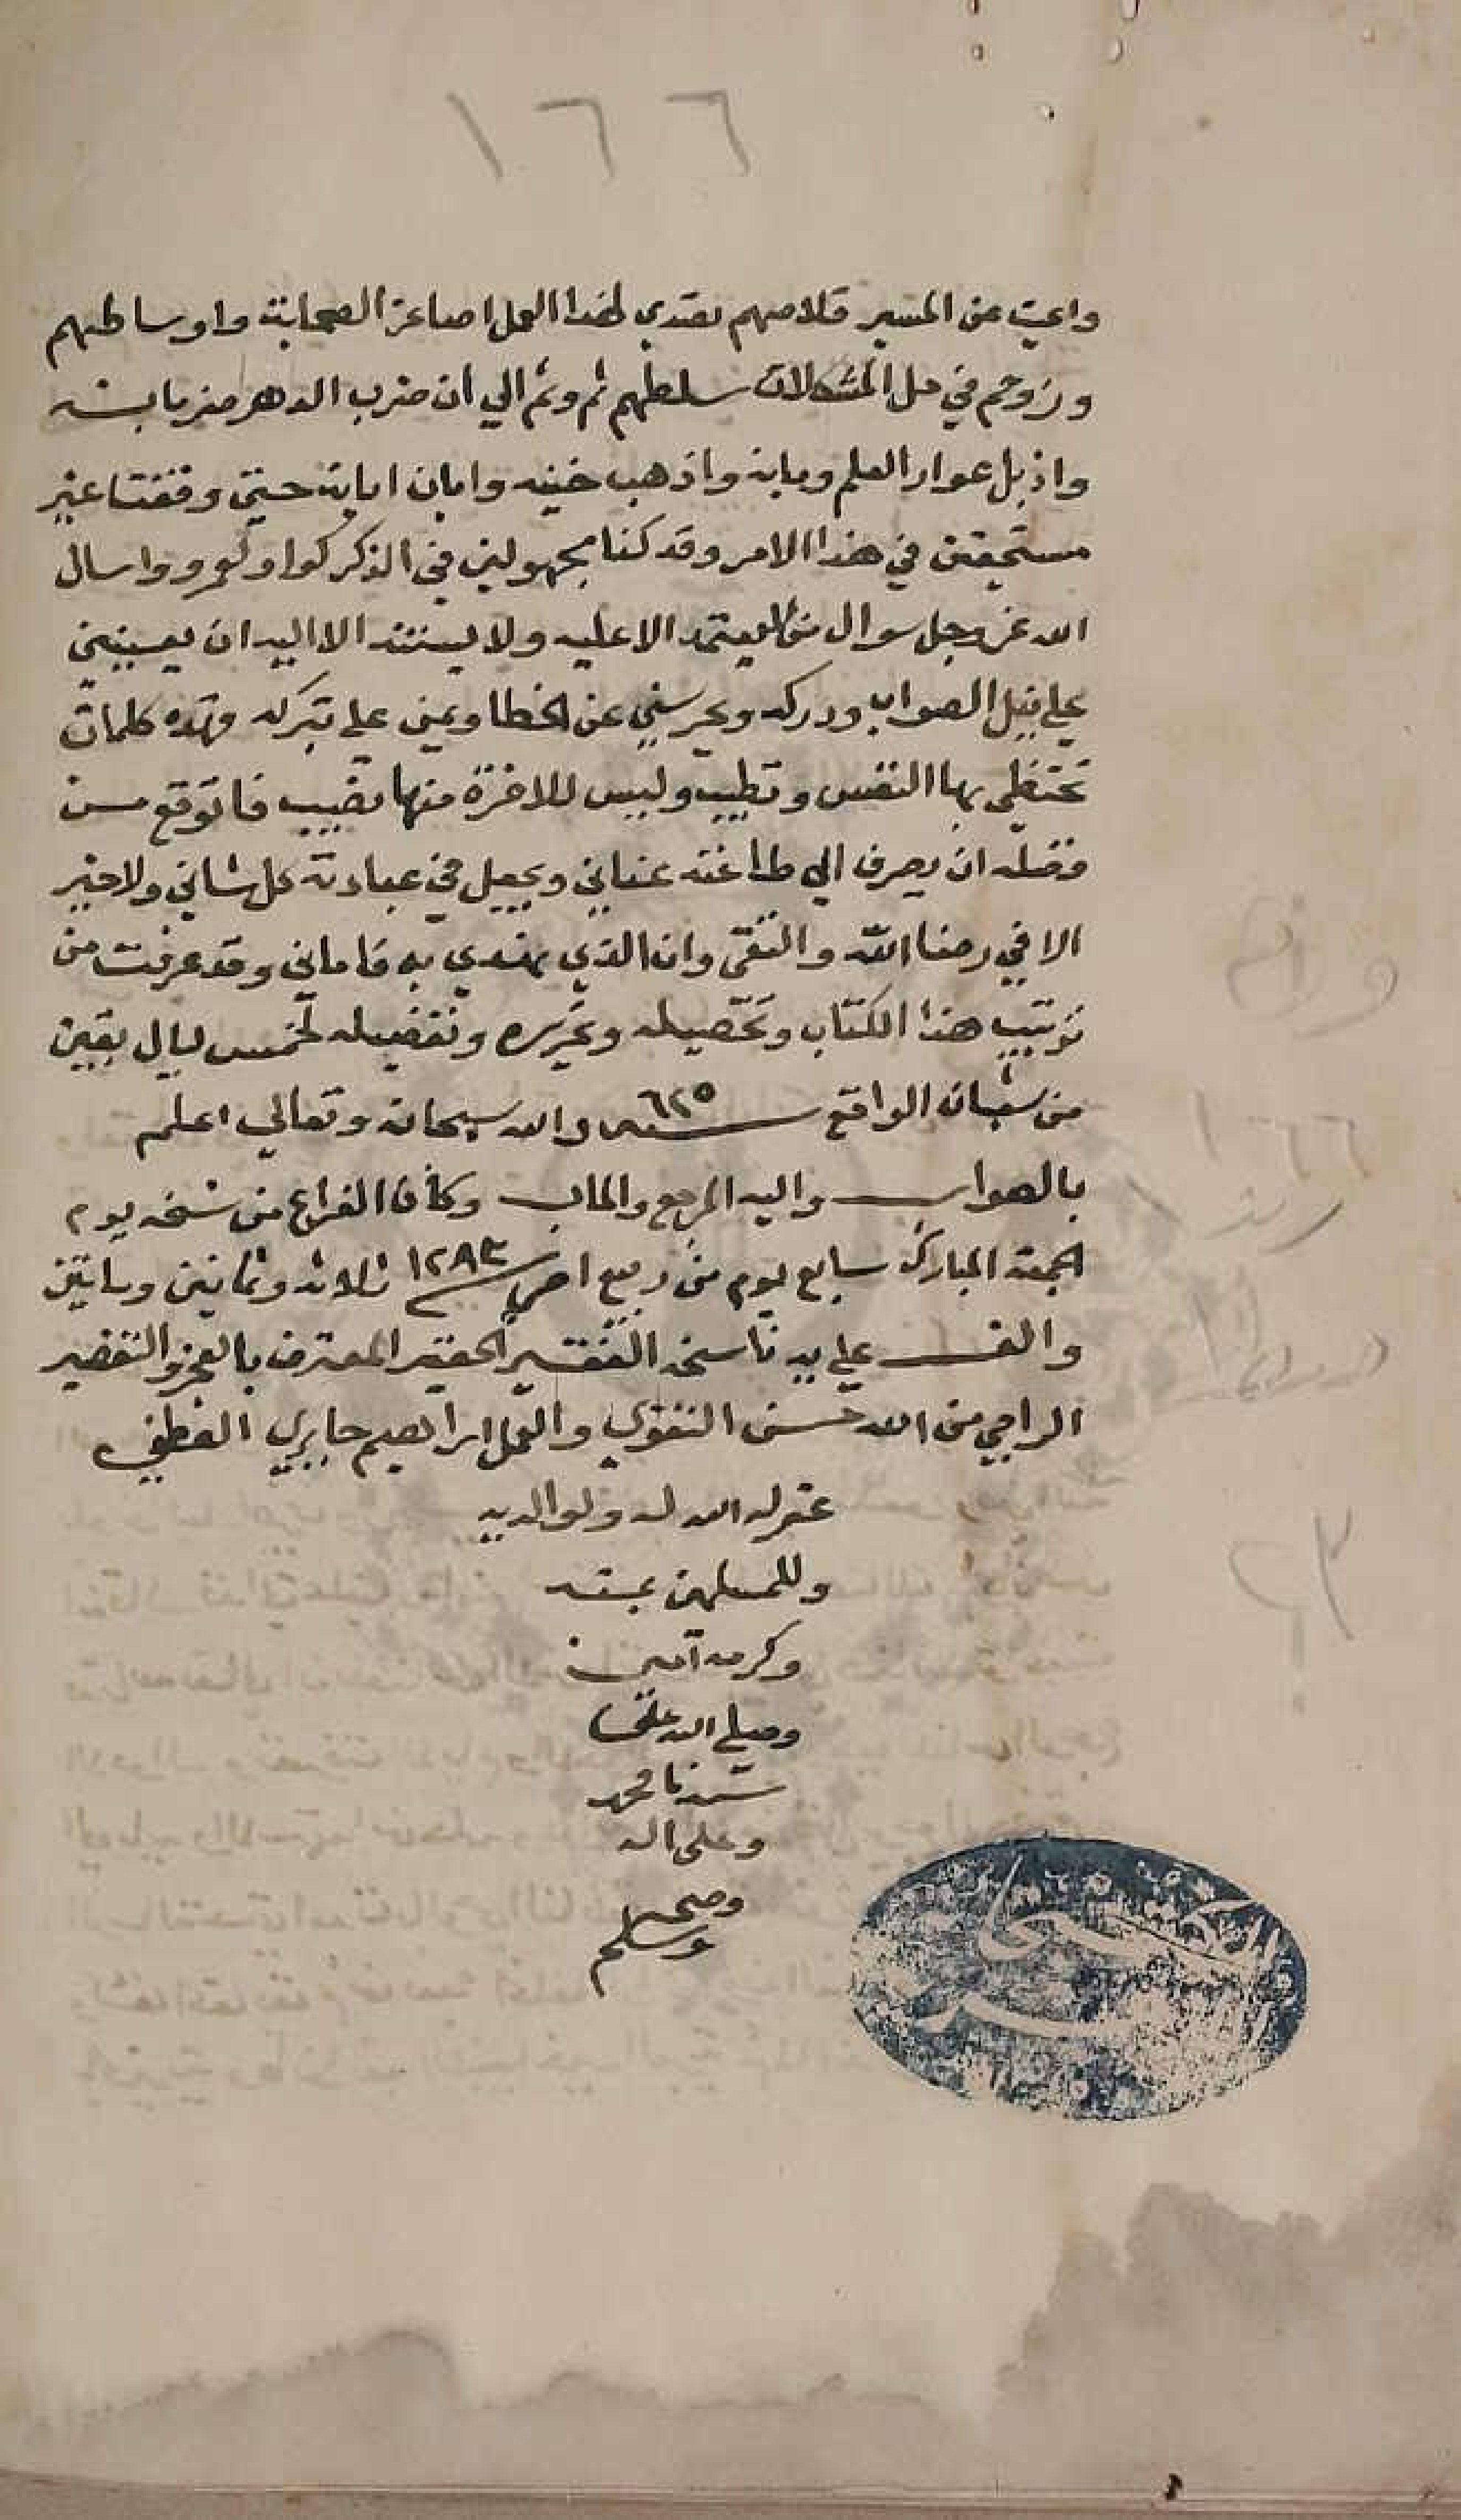 ١٦٦
واعيت عن المسير قلاصهم تصدي لهذا العمل اصاغر الصحابة واوساطهم
ورزوحم في حل المشكلات سلطهم ثم وثم الي ان ضرب الدهر ضربا بته
واذبل عوار العلم وبانه واذهب خنيه وابان ابانة حتي وقفنا غير
مستحقين في هذا الامر وقد كنا مجهولين في الذكر كواو عمرو واسال
الله عز وجل سوال من لا يعتمد الا عليه ولا يستند الا اليه ان يعينني
علي نيل الصواب ودركه ويحرسني عن الخطا ويمن علي بتركه وهذه كلمات
تحتظي بها النفس وتطيب وليس للاخرة منها نصيب فاتوقع من
فضله ان يصرف الي طاعته عناني ويجعل في عبادته كل شاني ولا خير
الا في رضا الله والتقي وان الذي يهتدي به قاماني وقد عرفت من
ترتيب هذا الكتاب وتحصيله وتحريره وتفضيله لخمس ليال بقين
من شعبان الواقع سنه ٦٢٥ والله سبحانه وتعالي اعلم
بالصواب واليه المرجع والماب وكان الفراغ من نسخه يوم
الجمعة المبارك سابع يوم من ربيع اخر ١٢٨٣ ثلاثه وثمانين وماتين
والف علي يد ناسخه الفقير الحقير المعترف بالعجز والتقصير
الراجي من الله حسن التقوي والعمل ابراهيم جابري القطني
غفر الله له ولوالديه
وللمسلمين بمنه
وكرمه آمين
وصلي الله علي
سيدنا محمد
وعلى اله
وصحبه
وسلم
١٦٦